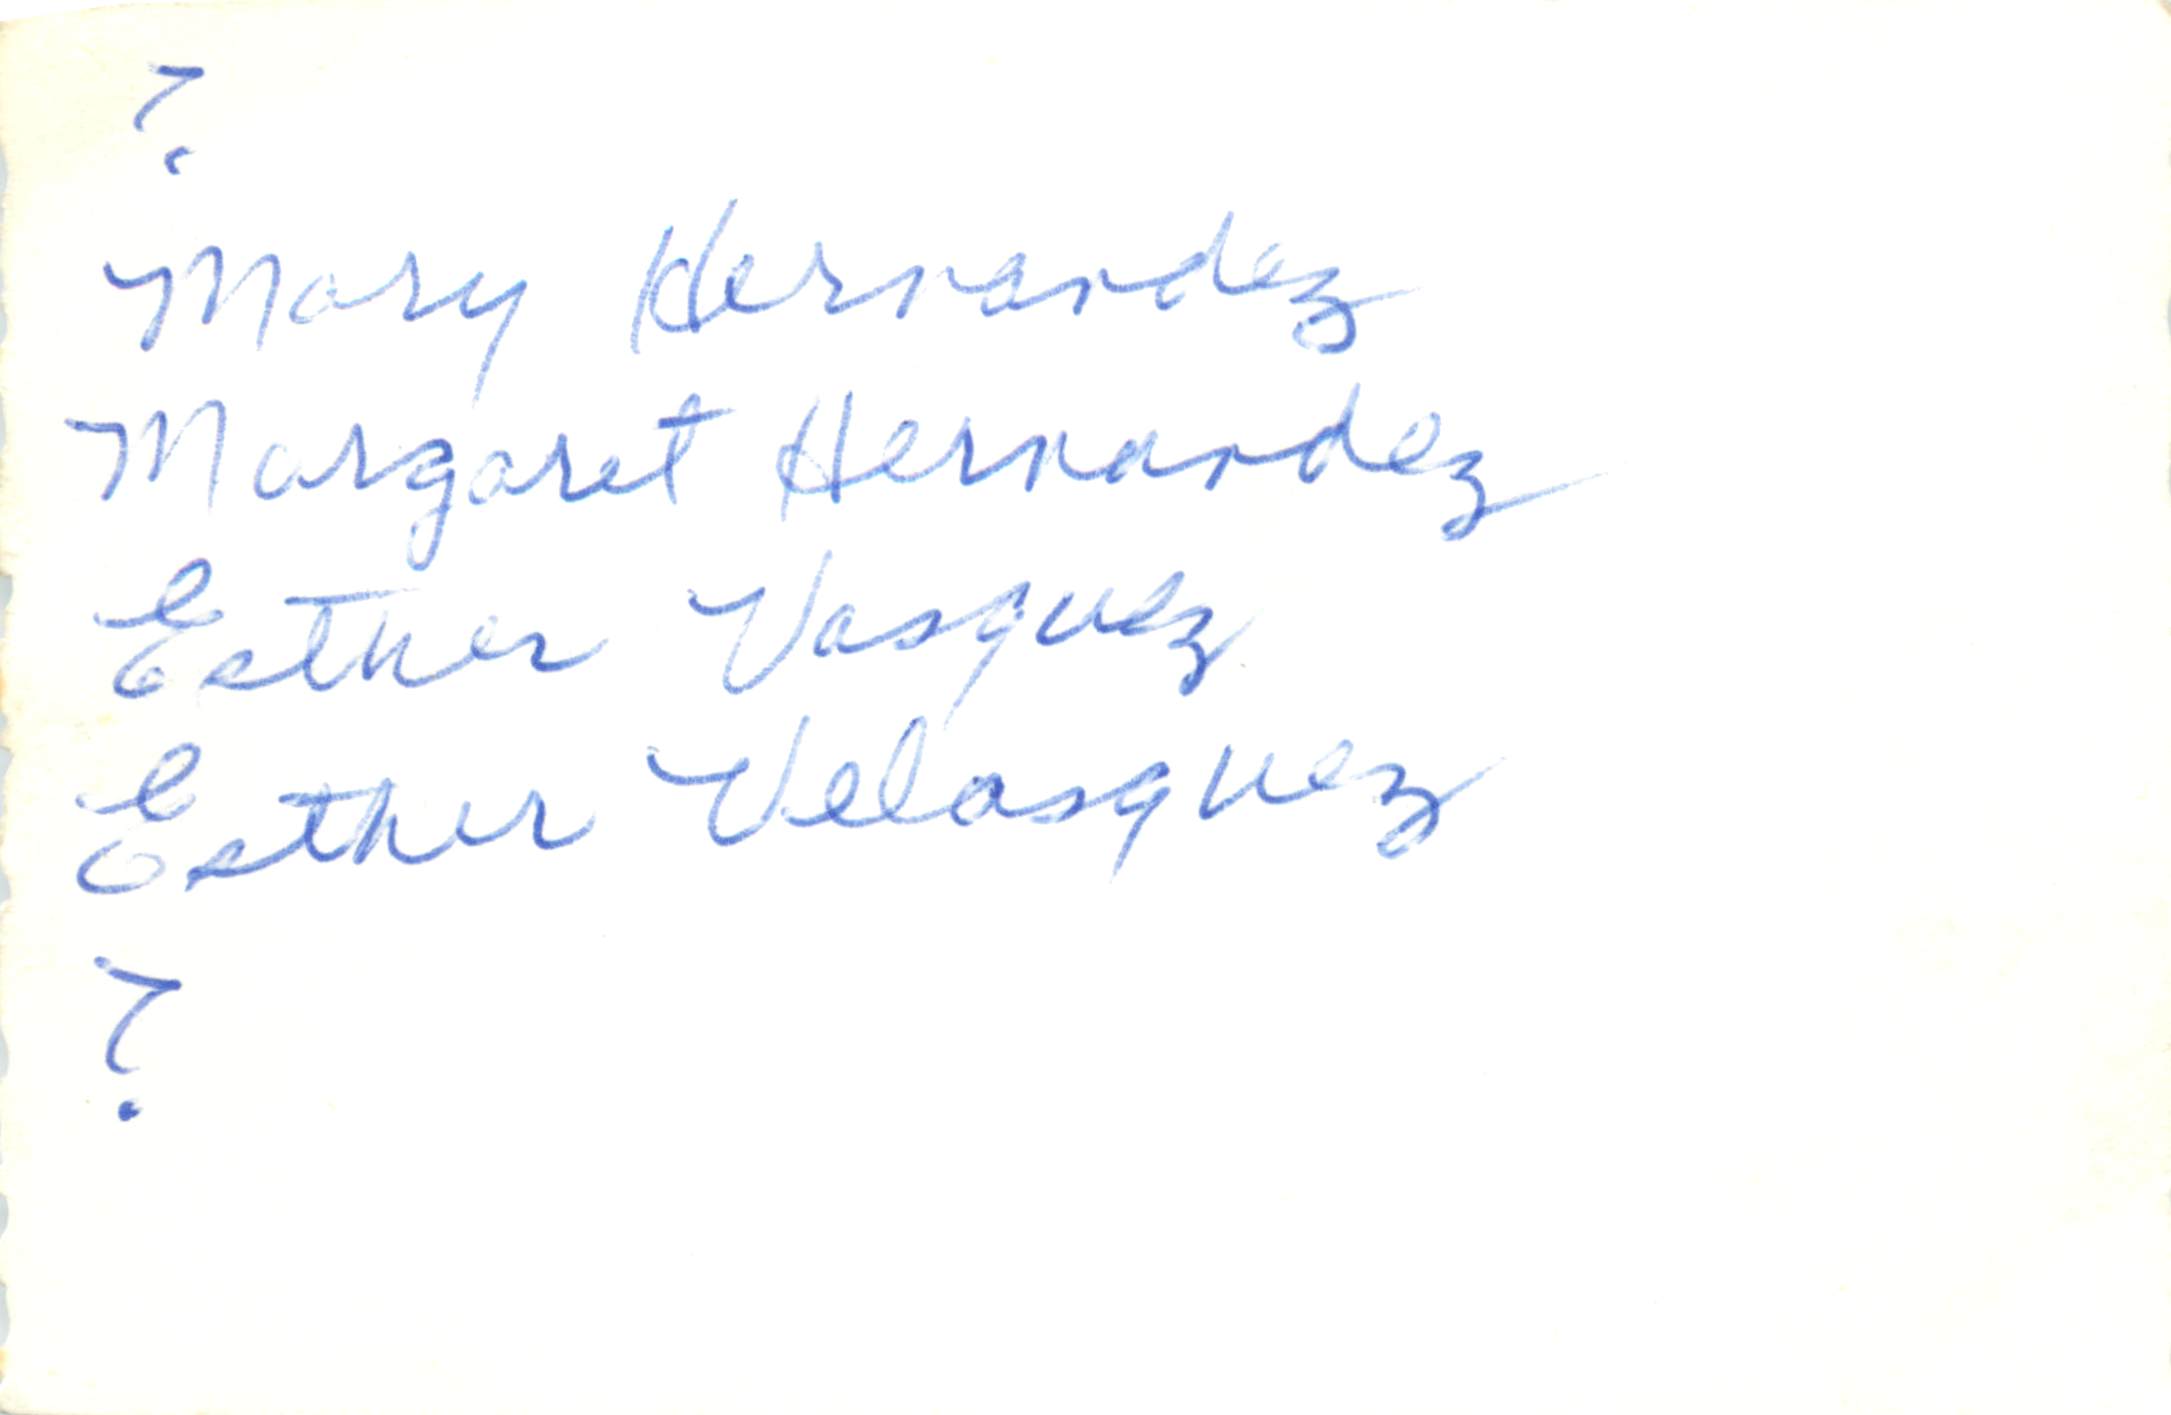 ?
Mary Hernandez
Margaret Hernandez
Esther Vasquez
Esther Velasquez
?